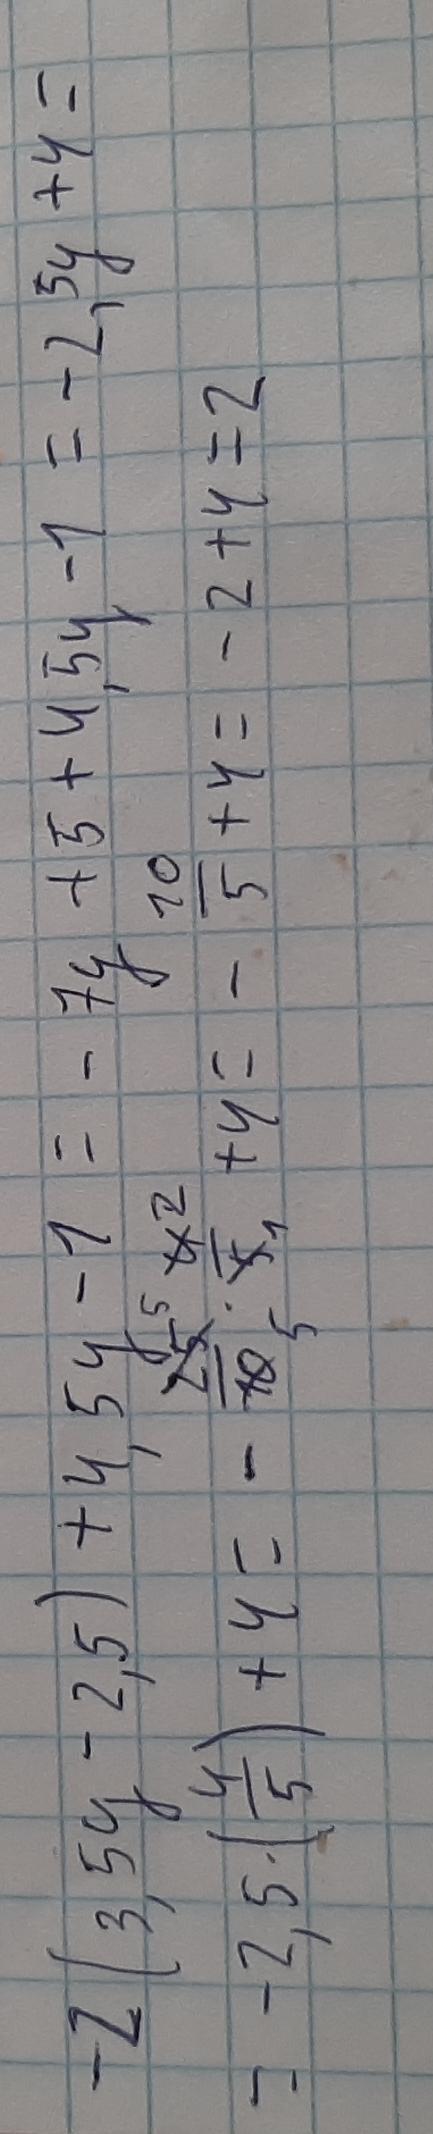 -2(3,5y-2,5)+4,5y-1=-7y+5+4,5y-1=-2,5y+4=
=-2,5·(4/5)+4=-25/10 5/5·4/5 2/1+4=-10/5+4=-2+4=2